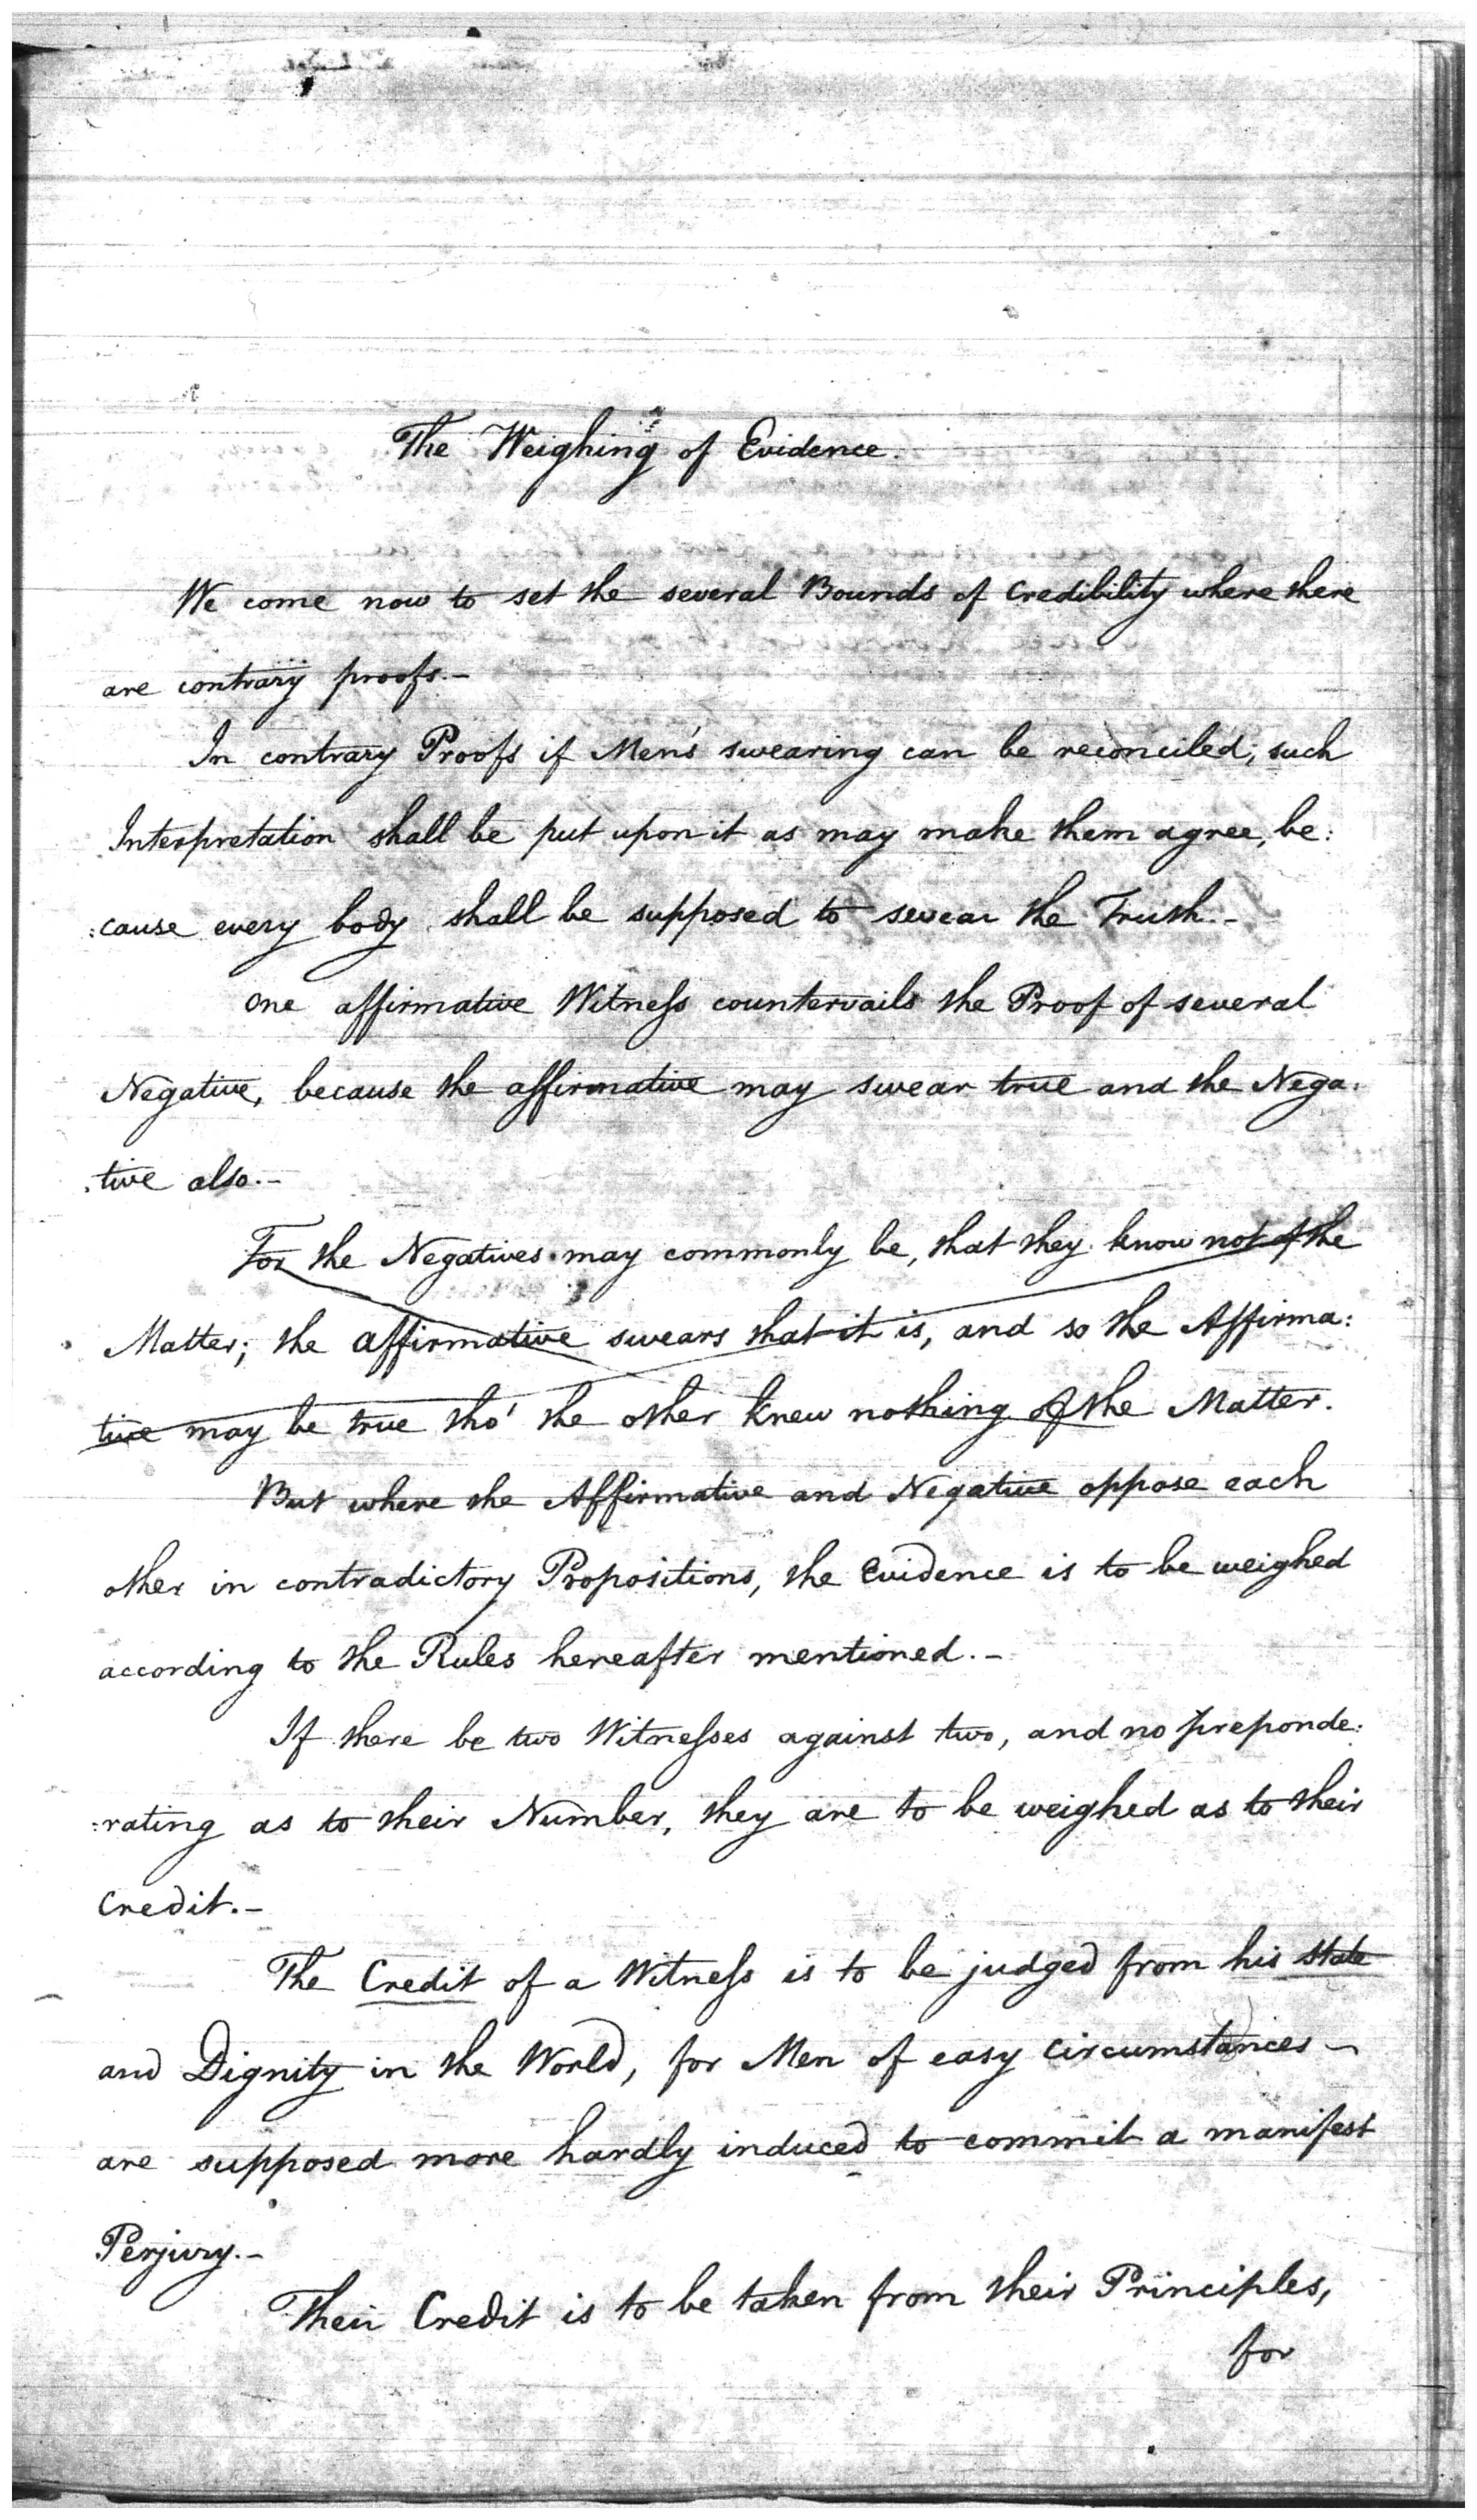 The Weighing of Evidence.
We come now to set the several Bounds of Credibility where there
are contrary proofs.-
In contrary Proofs if Men's swearing can be reconciled, such
Interpretation shall be put upon it as may make them agree, be:
:cause every body shall be supposed to swear the Truth.-
One affirmative Witness countervails the Proof of several
Negative, because the affirmative may swear true and the Nega:
:tive also.-
For the Negatives may commonly be, that they know not of the
Matter; the affirmative swears that it is, and so the Affirma:
tive may be true tho' the other knew nothing of the Matter.
But where the Affirmative and Negative oppose each
other in contradictory Propositions, the Evidence is to be weighed
according to the Rules hereafter mentioned.-
If there be two Witnesses against two, and no preponde:
:rating as to their Number, they are to be weighed as to their
Credit.-
The Credit of a Witness is to be judged from his state
and Dignity in the World, for Men of easy Circumstances -
are supposed more hardly induced to commit a manifest
Perjury.-
Their Credit is to be taken from their Principles,
for